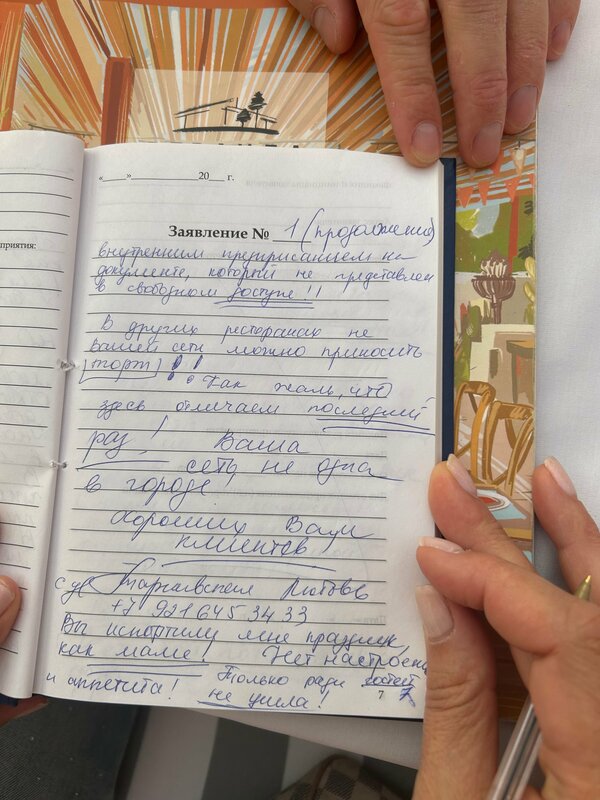 «____» ____________ 20___ г.
приятия:
Заявление № 1 (продолжение)
внутренним предприсанием на
документе, который не представлен
в свободном доступе!!
В других ресторанах не
вашей сети можно приносить
торт!!
Так жаль, что
здесь отмечаем последний
раз! Ваша
сеть не одна
в городе!
Хороших Вам
клиентов!
с ув Любовь
+7 921 645 34 33
Вы испортили мне праздник,
как маме! Нет настроения
и аппетита! Только ради гостей
не ушла!
7